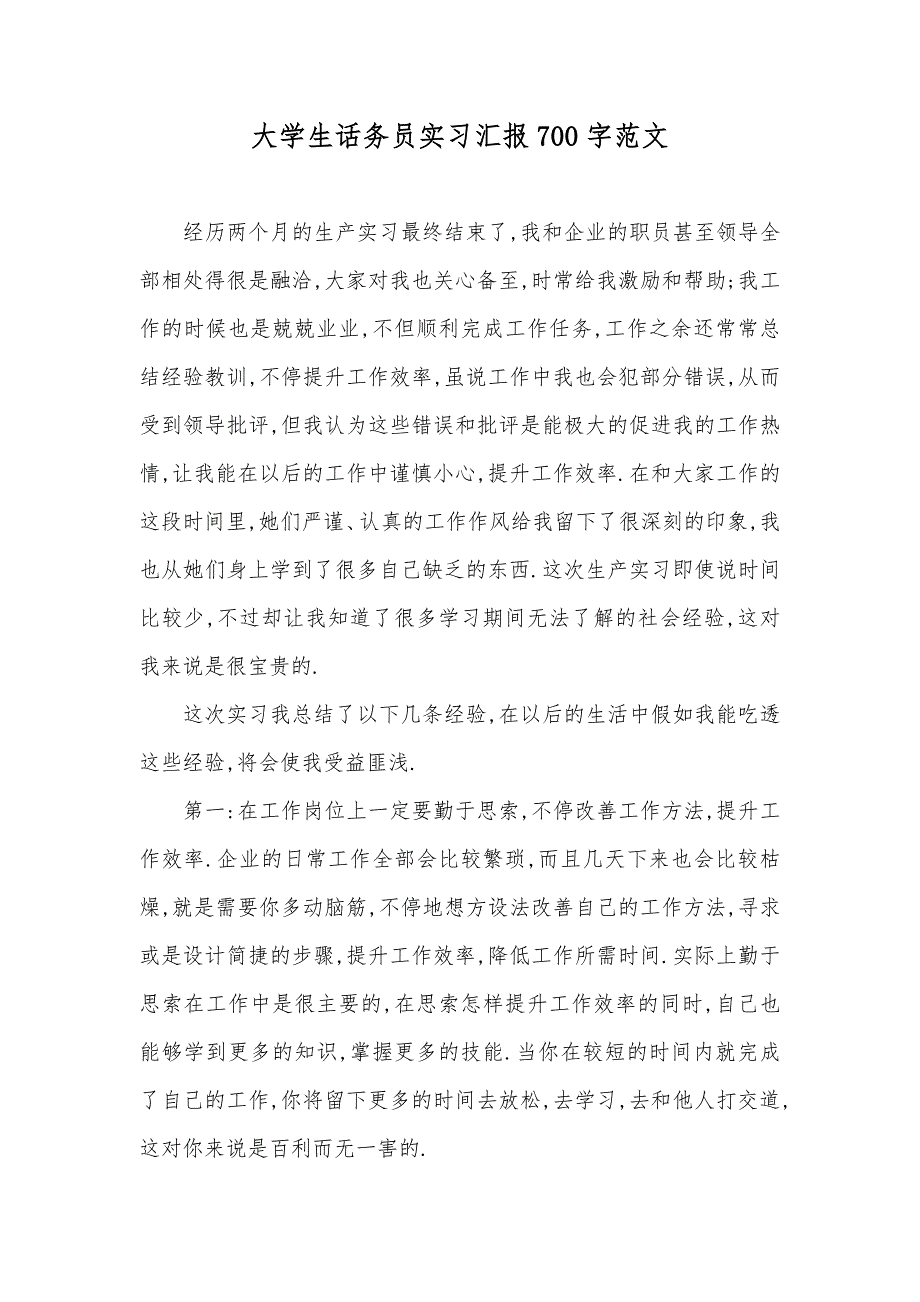 大学生话务员实习汇报 700 字范文
经历两个月的生产实习最终结束了,我和企业的职员甚至领导全
部相处得很是融洽,大家对我也关心备至,时常给我激励和帮助;我工
作的时候也是兢兢业业,不但顺利完成工作任务,工作之余还常常总
结经验教训,不停提升工作效率,虽说工作中我也会犯部分错误,从而
受到领导批评,但我认为这些错误和批评是能极大的促进我的工作热
情,让我能在以后的工作中谨慎小心,提升工作效率.在和大家工作的
这段时间里,她们严谨、认真的工作作风给我留下了很深刻的印象,我
也从她们身上学到了很多自己缺乏的东西.这次生产实习即使说时间
比较少,不过却让我知道了很多学习期间无法了解的社会经验,这对
我来说是很宝贵的.
这次实习我总结了以下几条经验,在以后的生活中假如我能吃透
这些经验,将会使我受益匪浅.
第一:在工作岗位上一定要勤于思索,不停改善工作方法,提升工
作效率.企业的日常工作全部会比较繁琐,而且几天下来也会比较枯
燥,就是需要你多动脑筋,不停地想方设法改善自己的工作方法,寻求
或是设计简捷的步骤,提升工作效率,降低工作所需时间.实际上勤于
思索在工作中是很主要的,在思索怎样提升工作效率的同时,自己也
能够学到更多的知识,掌握更多的技能.当你在较短的时间内就完成
了自己的工作,你将留下更多的时间去放松,去学习,去和他人打交道,
这对你来说是百利而无一害的.